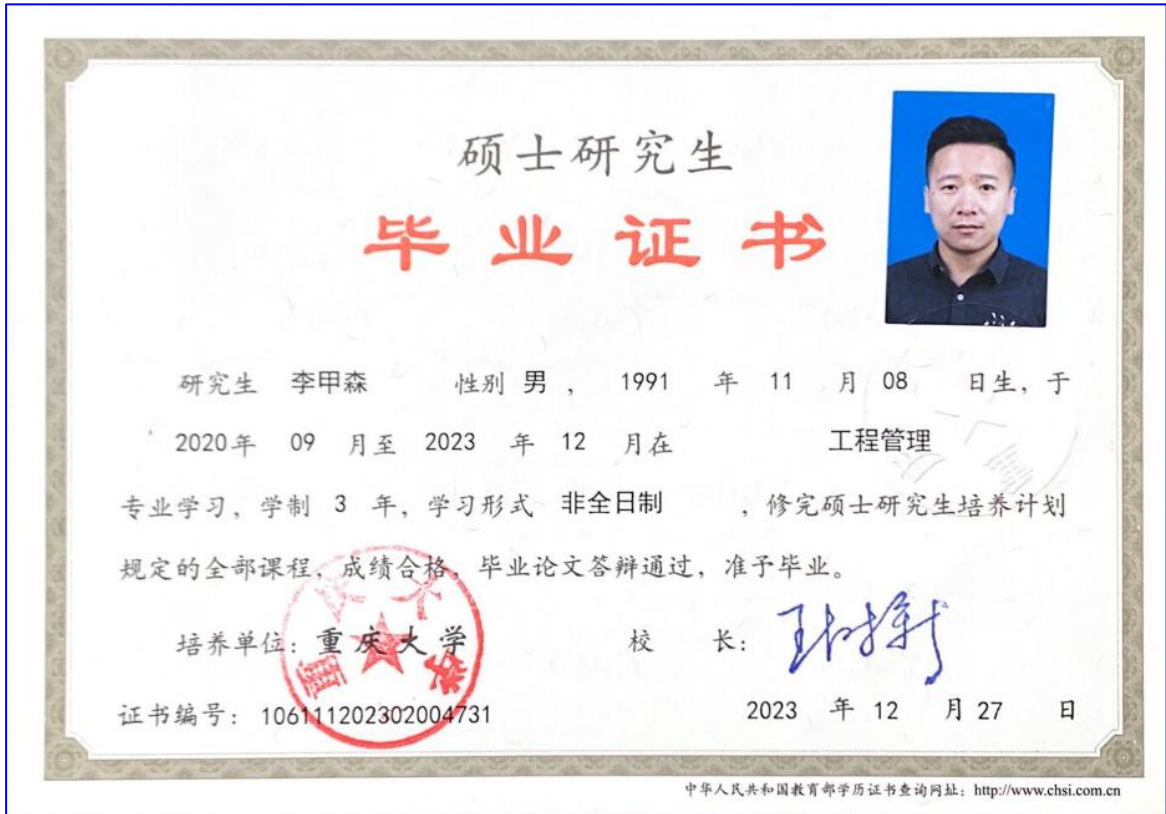 硕士研究生
毕业证书
研究生 李甲森 性别 男 ， 1991 年 11 月 08 日生，于
2020年 09 月至 2023 年 12 月在 工程管理
专业学习，学制 3 年，学习形式 非全日制 ，修完硕士研究生培养计划
规定的全部课程，成绩合格，毕业论文答辩通过，准予毕业。
培养单位：重庆大学 校 长：
重庆大学
证书编号：106111202302004731 2023 年 12 月 27 日
中华人民共和国教育部学历证书查询网址：http://www.chsi.com.cn